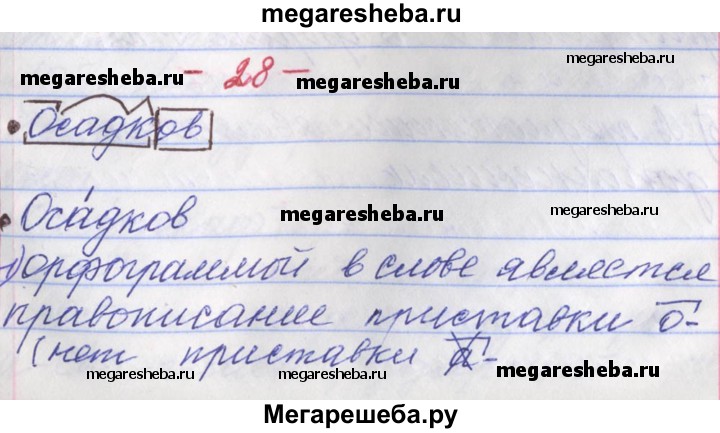 megaresheba.ru
megaresheba.ru
megaresheba.ru
- 28 -
megaresheba.ru
• Осадков
• Оса́дков
megaresheba.ru
megaresheba.ru
1) орфограммой в слове является
правописание приставки о-
(нет приставки а-
megaresheba.ru
megaresheba.ru
megaresheba.ru
Мегарешеба.ру